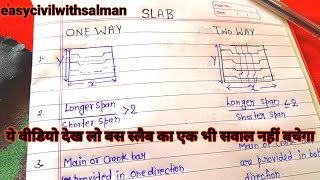 easycivilwithsalman
SLAB
ONE WAY
TWO WAY
1.
y
x
y
x
2.
Longer span >2
Shorter span
Longer span <2
Shorter span
ये वीडियो देख लो बस स्लैब का एक भी सवाल नहीं बचेगा
3.
Main or Crank bar
is provided in one direction
Main or Crank
are provided in both
direction.